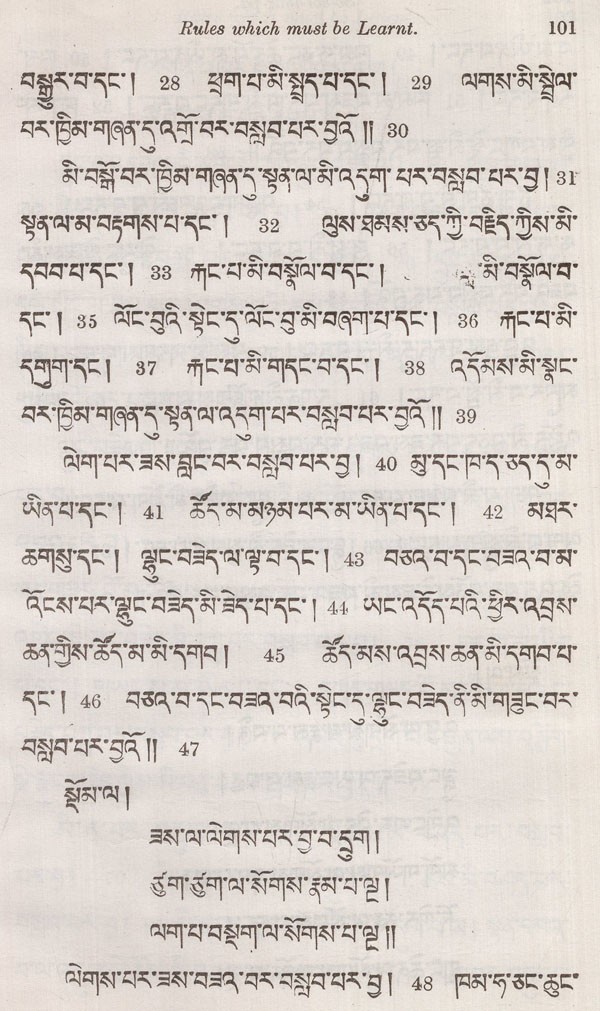 Rules which must be Learnt. 101
བསྒྱུར་བ་དང་། 28 ཕྲག་པ་མི་སྤྲད་པ་དང་། 29 ལགས་མི་སྦྲེལ་
བར་ཁྱིམ་གཞན་དུ་འགྲོ་བར་བསླབ་པར་བྱའོ།། 30
མི་བསྒོ་བར་ཁྱིམ་གཞན་དུ་སྟན་ལ་མི་འདུག་པར་བསླབ་པར་བྱ། 31
སྟན་ལ་མ་བརྟགས་པ་དང་། 32 ལུས་ཐམས་ཅད་ཀྱི་བརྗིད་ཀྱིས་མི་
དབབ་པ་དང་། 33 རྐང་པ་མི་བསྣོལ་བ་དང་། མི་བསྣོལ་བ་
དང་། 35 ལོང་བུའི་སྟེང་དུ་ལོང་བུ་མི་བཞག་པ་དང་། 36 རྐང་པ་མི་
དགུག་དང། 37 རྐང་པ་མི་གདང་བ་དང་། 38 འདོམས་མི་སྣང་
བར་ཁྱིམ་གཞན་དུ་སྟན་ལ་འདུག་པར་བསླབ་པར་བྱའོ།། 39
ལེག་པར་ཟས་བླང་བར་བསླབ་པར་བྱ། 40 མུ་དང་ཁ་ད་ཅད་དུ་མ་
ཡིན་པ་དང་། 41 ཚོད་མ་མཉམ་པར་མ་ཡིན་པ་དང་། 42 མཐར་
ཆགསུ་དང་། ལྷུང་བཟེད་ལ་ལྟ་བ་དང་། 43 བཅའ་བ་དང་བཟའ་བ་མ་
འོངས་པར་ལྷུང་བཟེད་མི་ཟེད་པ་དང་། 44 ཡང་འདོད་པའི་ཕྱིར་འབྲས་
ཆན་གྱིས་ཚོད་མ་མི་དགབ། 45 ཚོད་མས་འབྲས་ཆན་མི་དགབ་པ་
དང་། 46 བཅའ་བ་དང་བཟའ་བའི་སྟེང་དུ་ལྷུང་བཟེད་ནི་མི་གཟུང་བར་
བསླབ་པར་བྱའོ།། 47
སྡོམ་ལ།
ཟས་ལ་ལེགས་པར་བྱ་བ་དྲུག།
ཙུག་ཙུག་ལ་སོགས་རྣམ་པ་ལྔ།
ལག་པ་བསྡག་ལ་སོགས་པ་ལྔ།།
ལེགས་པར་ཟས་བཟའ་བར་བསླབ་པར་བྱ། 48 ཁམ་ཧ་ཅང་ཆུང་